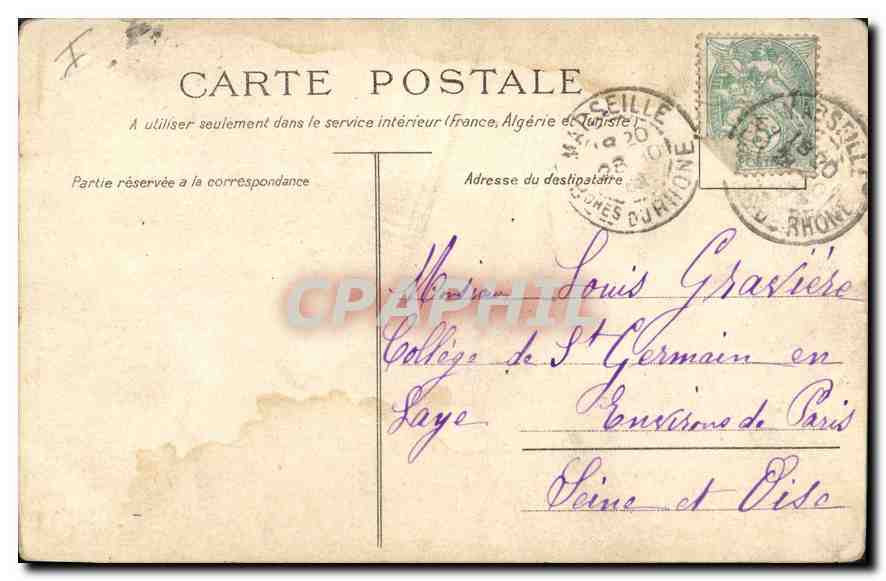 I
CARTE POSTALE
A utiliser seulement dans le service intérieur (France, Algérie et Tunisie)
Partie réservée a la correspondance
Adresse du destinataire
MARSEILLE
DU RHONE
MARSEILLE
DU RHONE
CPAPHIL
Monsieur Louis Gravière
Collège de St Germain en
Laye Environs de Paris
Seine et Oise